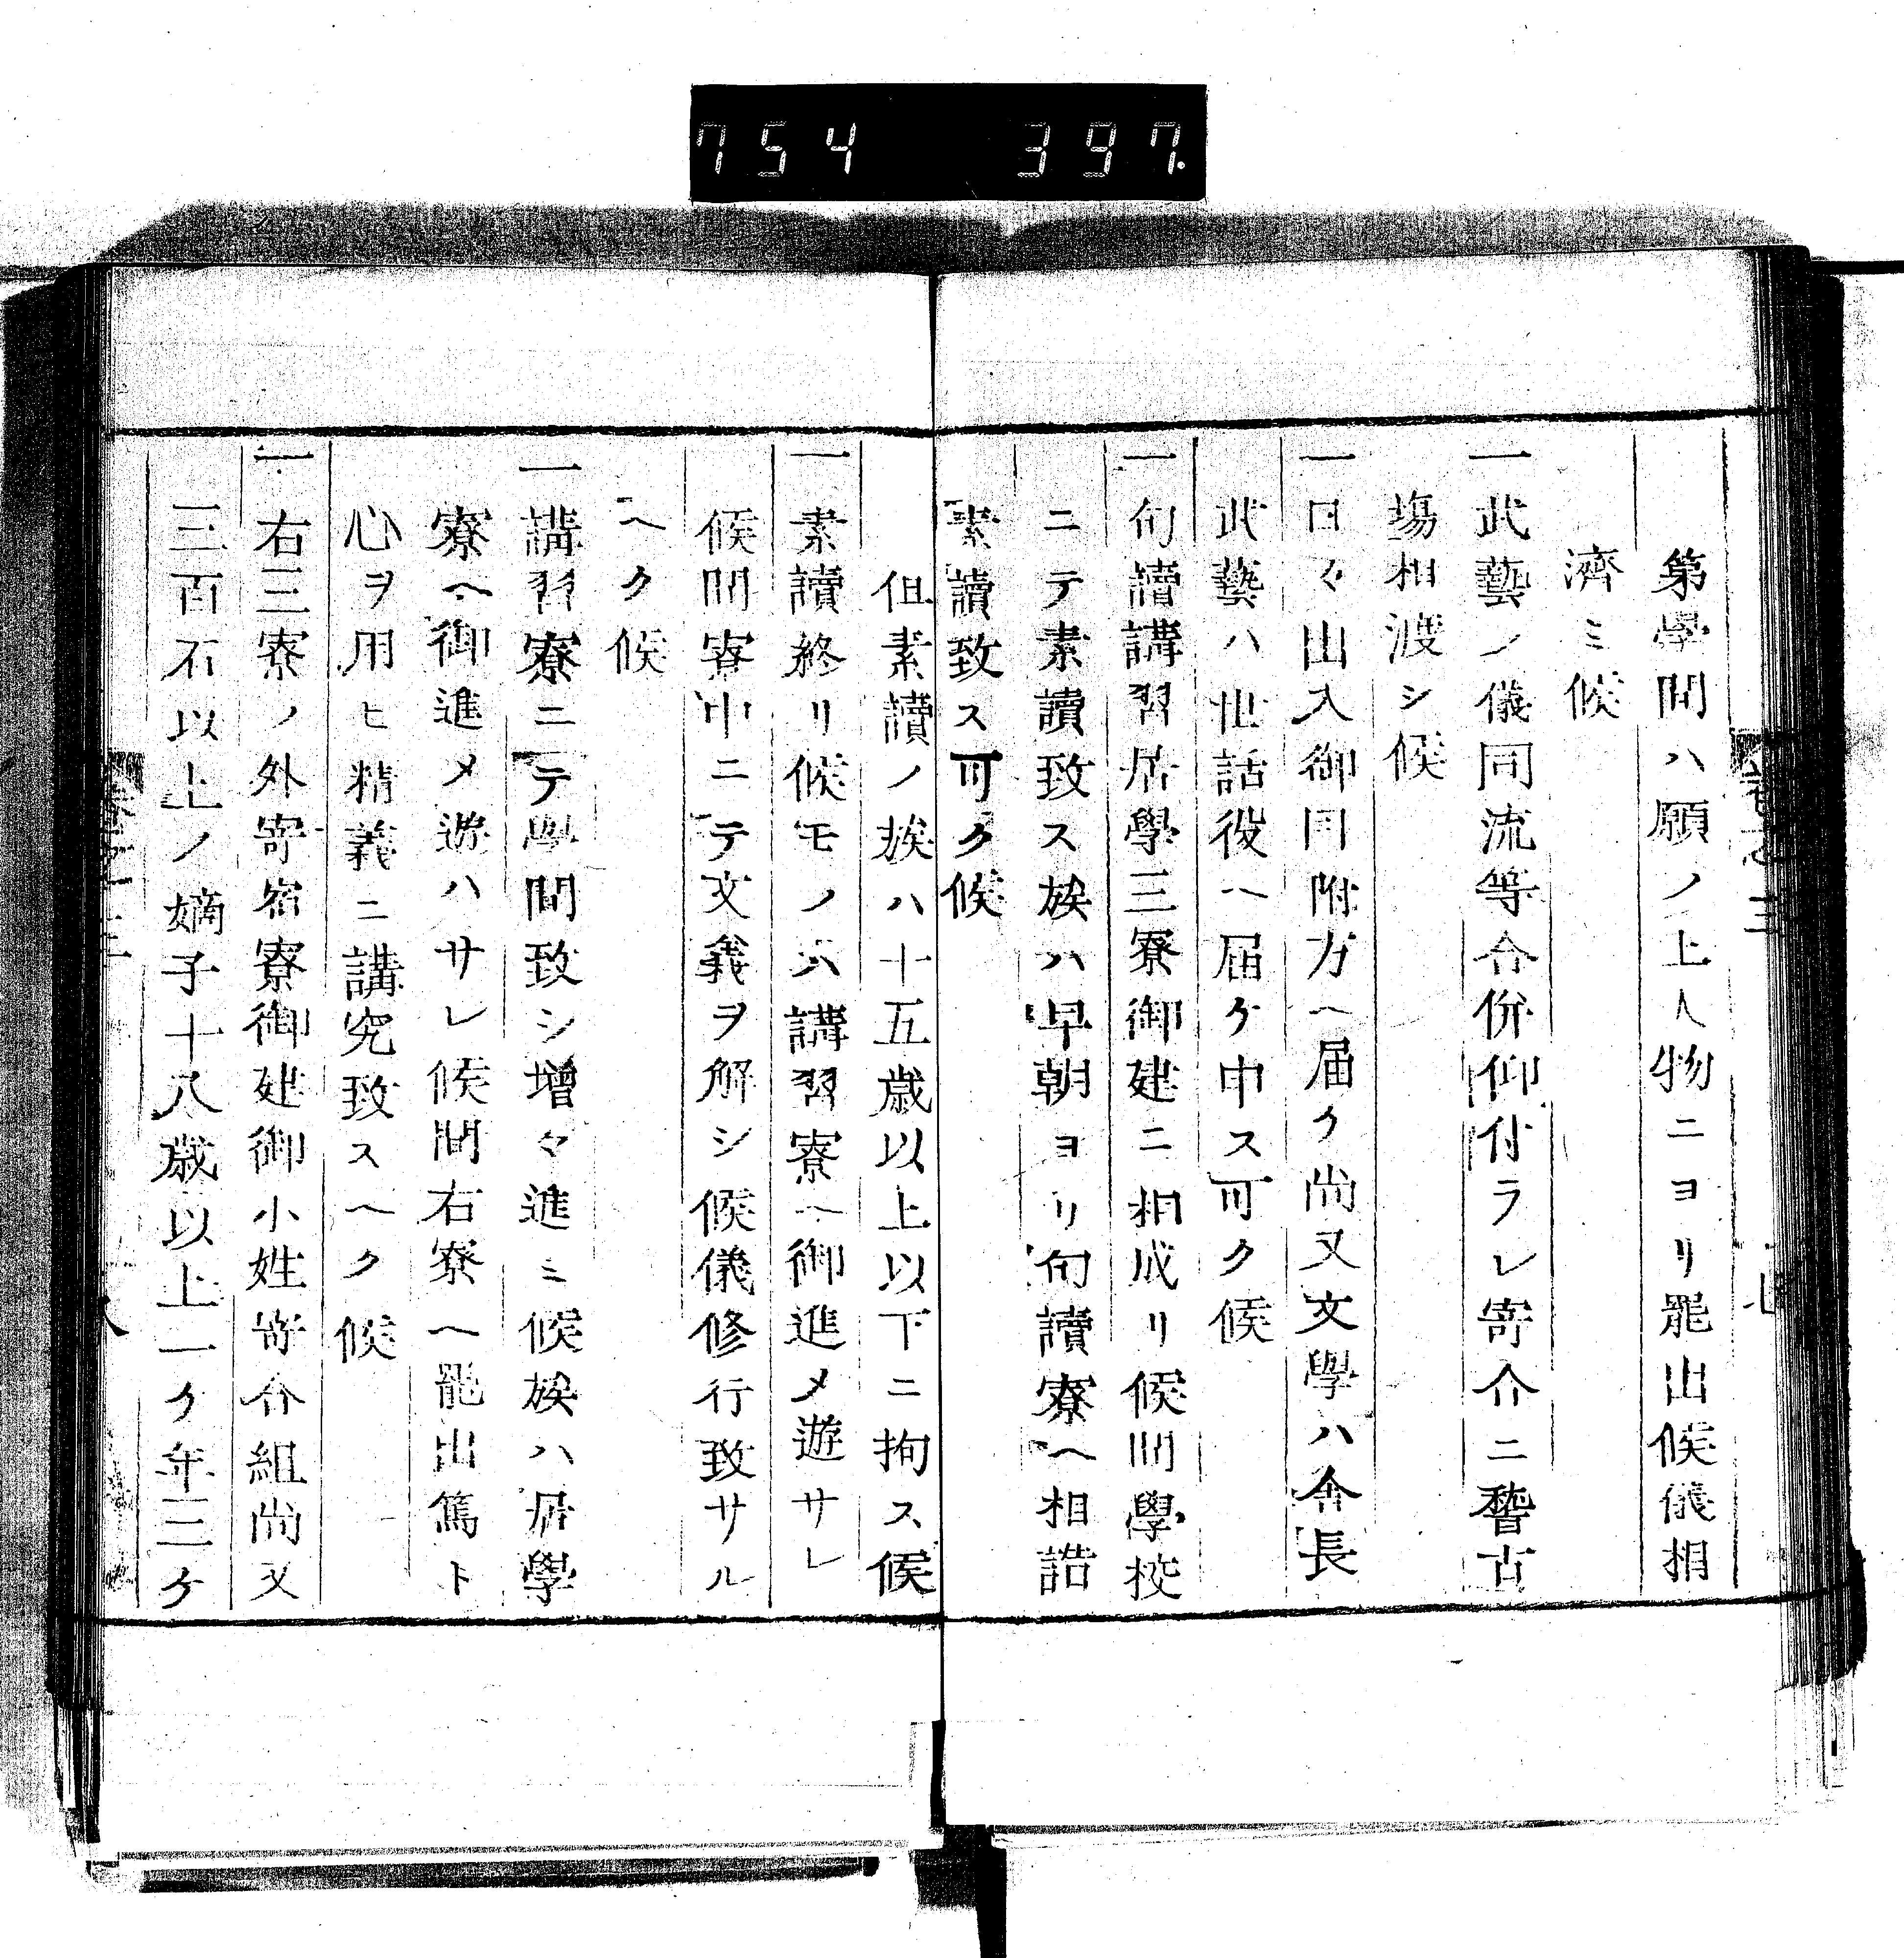 754 397.
第學問ハ願ノ上人物ニヨリ罷出候儀相
濟ミ候
一武藝ノ儀同流等合併仰付ラレ寄合ニ稽古
場相渡シ候
一日々出入御目附方ヘ届ケ尚又文學ハ舎長
武藝ハ世話役ヘ届ケ申ス可ク候
一句讀講習居學三寮御建ニ相成リ候間學校
ニテ素讀致ス族ハ早朝ヨリ句讀寮ヘ相詰
素讀致ス可ク候
但素讀ノ族ハ十五歳以上以下ニ拘ス候
一素讀終リ候モノハ講習寮ヘ御進メ遊サレ
候間寮中ニテ文義ヲ解シ候儀修行致サル
ヘク候
一講習寮ニテ學問致シ增々進ミ候族ハ居學
寮ヘ御進メ遊ハサレ候間右寮ヘ罷出篤ト
心ヲ用ヒ精義ニ講究致スヘク候
一右三寮ノ外寄宿寮御建御小姓寄合組尚又
三百石以上ノ嫡子十八歳以上一ケ年三ケ